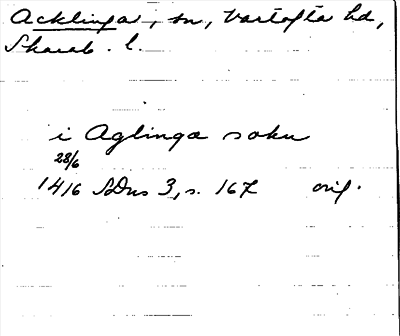 Acklinga, sn, Vartofta hd,
Skarab. l.
i Aglinga sokn
28/6
1416 SDns 3, s. 167 orig.